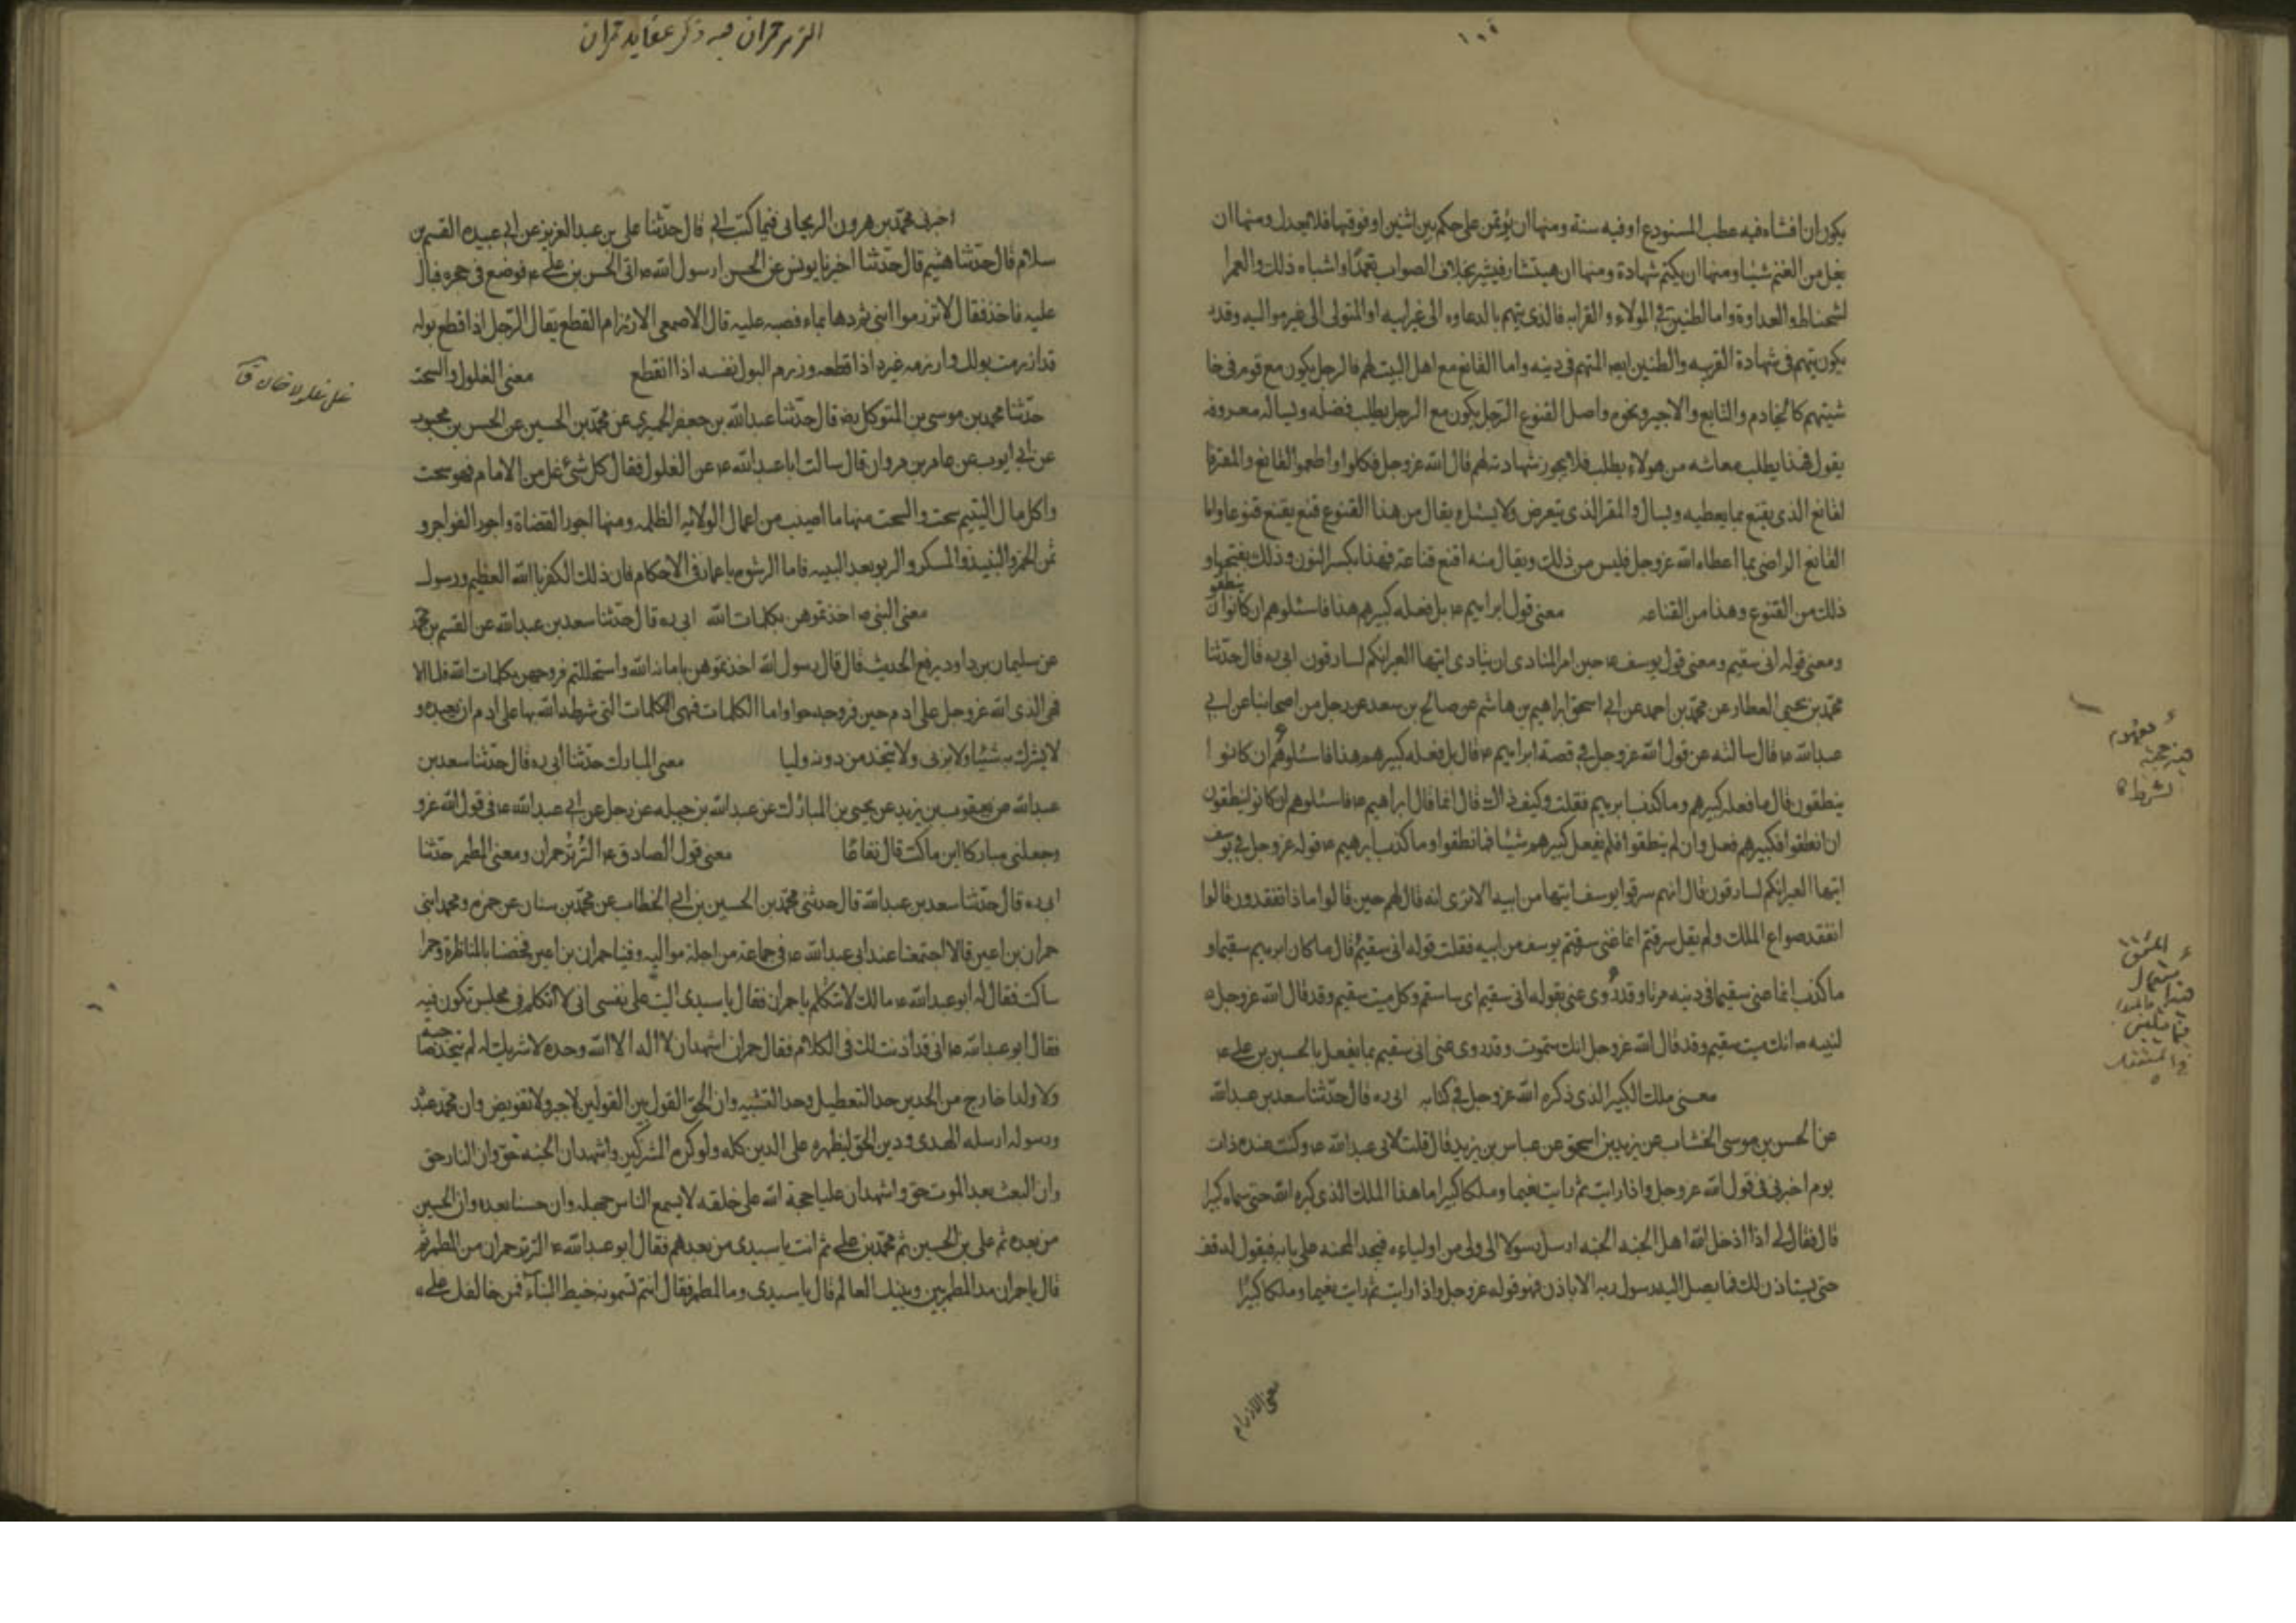 يكون ان افشاءه فيه عطب المستودع او فيه سنة ومنها ان يؤتمن على حكم بين اثنين او فوقهما فلا يعدل ومنها ان
يغل من الغنم شيئا ومنها ان يكتم شهادة ومنها ان يستشار فيشير بخلاف الصواب تعمدا واشباه ذلك والغمر ا
لشحناء والعداوة واما الظنين في الولاء والقرابه فالذى يتهم بالدعاوه الى غير ابيه او المتولى الى غير مواليه وقد
يكون يتهم فى شهادة القريبه والظنين ايضا المتهم فى دينه واما القانع مع اهل البيت لهم فالرجل يكون مع قوم فى حا
شيتهم كالخادم والتابع والاجير ونحوه واصل القنوع الرجل يكون مع الرجل يطلب فضله ويساله معروفه
يقول فهذا يطلب معاشه من هولاء يطلب فلا يجوز شهادته لهم قال الله عز وجل فكلوا واطعموا القانع والمعتر فا
لقانع الذى يقنع بما يعطيه ويسال والمعتر الذى يتعرض ولا يسئل ويقال من هذا القنوع قنع يقنع قنوعا واما
القانع الراضى بما اعطاه الله عز وجل فليس من ذلك ويقال منه اقنع قناعة فهذا بكسر النون وذلك بفتحها و
ذلك من القنوع وهذا من القناعه معنى قول ابراهيم ع بل فعله كبيرهم هذا فاسئلوهم ان كانوا ينطقون
ومعنى قوله انى سقيم ومعنى قول يوسف ع حين امر المنادى ان ينادى ايتها العير انكم لسارقون ابى ره قال حدثنا
محمد بن يحيى العطار عن محمد بن احمد عن ابى اسحق ابراهيم بن هاشم عن صالح بن سعد عن رجل من اصحابنا عن ابى
عبدالله ع قال سالته عن قول الله عز وجل فى قصة ابراهيم ع قال بل فعله كبيرهم هذا فاسئلوهم ان كانوا
ينطقون قال ما فعله كبيرهم وما كذب ابرهيم فقلت وكيف ذاك قال انما قال ابراهيم ع فاسئلوهم ان كانوا ينطقون
ان نطقوا فكبيرهم فعل وان لم ينطقوا فلم يفعل كبيرهم شيئا فما نطقوا وما كذب ابرهيم ع قوله عز وجل فى يوسف
ايتها العير انكم لسارقون قال انهم سرقوا يوسف من ابيه الا ترى انه قال لهم حين قالوا ماذا تفقدون قالوا
نفقد صواع الملك ولم يقل سرقتم انما عنى سرقتم يوسف من ابيه فقلت قوله انى سقيم قال ما كان ابرهيم سقيما و
ما كذب انما عنى سقيما فى دينه مرتادا وقد روى عنى بقوله انى سقيم اى ساسقم وكل ميت سقيم وقد قال الله عز وجل
لنبيه ص انك ميت سقيم وقد قال الله عز وجل انك ستموت وقد روى عنى انى سقيم بما يفعل بالحسين بن على ع
معنى ملك الكبير الذى ذكره الله عز وجل فى كتابه ابى ره قال حدثنا سعد بن عبدالله
عن الحسن بن موسى الخشاب عن يزيد بن اسحق عن عباس بن يزيد قال قلت لابى عبدالله ع وكنت عنده ذات
يوم اخبرنى فى قول الله عز وجل واذا رايت ثم رايت نعيما وملكا كبيرا ما هذا الملك الذى كبره الله حتى سماه كبيرا
قال فقال لى اذا ادخل الله اهل الجنه الجنه ارسل رسولا الى ولى من اولياءه فيجد الحجبه على بابه فيقول له قف
حتى يستاذن لك فما يصل اليه رسول ربه الا باذن فهو قوله عز وجل واذا رايت ثم رايت نعيما وملكا كبيرا
معنى الازرام
التر تر حمران فيه ذكر عقايد حمران
اخبرنى محمد بن هرون الزنجانى فيما كتب الى قال حدثنا على بن عبدالعزيز عن ابى عبيده القسم بن
سلام قال حدثنا هشيم قال حدثنا اخبرنا يونس عن الحسن ان رسول الله ص اتى الحسن بن على ع فوضع فى حجره فبال
عليه فاخذ فقال لا تزرموا ابنى ثم دعا بماء فصبه عليه قال الاصمعى الازرام القطع يقال للرجل اذا قطع بوله
قد ازرمت بولك وازرمه غيره اذا قطعه وزرم البول نفسه اذا انقطع معنى الغلول والسحت
حدثنا محمد بن موسى بن المتوكل رضه قال حدثنا عبدالله بن جعفر الحميرى عن محمد بن الحسين عن الحسن بن محبوب
عن ابى ايوب عن عامر بن مروان قال سالت اباعبدالله ع عن الغلول فقال كل شئ غل من الامام فهو سحت
واكل مال اليتيم سحت والسحت منها ما اصيب من اعمال الولاتيه الظلمه ومنها اجور القضاة واجور الفواجر و
ثمن الخمر والنبيذ والمسكر والربو بعد البينه فاما الرشوه يا عمار فى الاحكام فان ذلك الكفر بالله العظيم ورسوله
معنى النبى ص اخذتموهن بكلمات الله ابى ره قال حدثنا سعد بن عبدالله عن القسم بن محمد
عن سليمان بن داود يرفع الحديث قال قال رسول الله اخذتموهن بامانة الله واستحللتم فروجهن بكلمات الله فاما الا
فهى الذى الله عز وجل على ادم حين زوجه حوا واما الكلمات فهى الكلمات التى شرط الله بها على ادم ان يعبده و
لا يشرك به شيئا ولا يزنى ولا يتخذ من دونه وليا معنى المبارك حدثنا ابى ره قال حدثنا سعد بن
عبدالله عن يعقوب بن يزيد عن يحيى بن المبارك عن عبدالله بن جبله عن رجل عن ابى عبدالله ع فى قول الله عز و
وجعلنى مباركا اين ما كنت قال نفاعا معنى قول الصادق ع التر تر حمران ومعنى المطمر حدثنا
ابى ره قال حدثنا سعد بن عبدالله قال حدثنى محمد بن الحسين بن ابى الخطاب عن محمد بن سنان عن حمزه ومحمد ابنى
حمران بن اعين قالا اجتمعنا عند ابى عبدالله ع فى جماعة من اجلة مواليه وفينا حمران بن اعين فخضنا بالمناظرة وحمرا
ساكت فقال له ابو عبدالله ع مالك لا تتكلم يا حمران فقال يا سيدى اليت على نفسى انى لا اتكلم فى مجلس تكون فيه
فقال ابو عبدالله ع انى قد اذنت لك فى الكلام فقال حمران اشهد ان لا اله الا الله وحده لا شريك له لم يتخذ صاحبة
ولا ولدا خارج من الحدين حد التعطيل وحد التشبيه وان الحق القول بين القولين لا جبر ولا تفويض وان محمد عبد
ورسوله ارسله الهدى ودين الحق ليظهره على الدين كله ولو كره المشركين واشهد ان الجنه حق وان النار حق
وان البعث بعد الموت حق واشهد ان عليا حجة الله على خلقه لا يسع الناس جهله وان حسنا بعده وان الحسين
من بعده ثم على بن الحسين ثم محمد بن على ثم انت يا سيدى من بعدهم فقال ابو عبدالله ع التر تر حمران من المطمر ثم
قال يا حمران مد المطمر بين وبينك العالم قال يا سيدى وما المطمر فقال انتم تسمونه خيط البناء فمن خالفك على